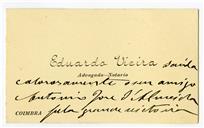 Eduardo Vieira saúda
Advogado-Notario
calorosamente o seu amigo
Antonio José d'Almeida
COIMBRA
pela grande victoria